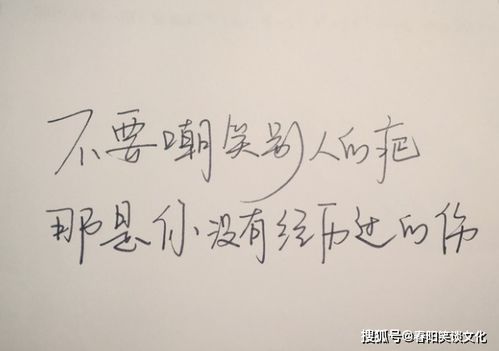 不要嘲笑别人的疤
那是你没有经历过的伤
搜狐号@春阳笑谈文化